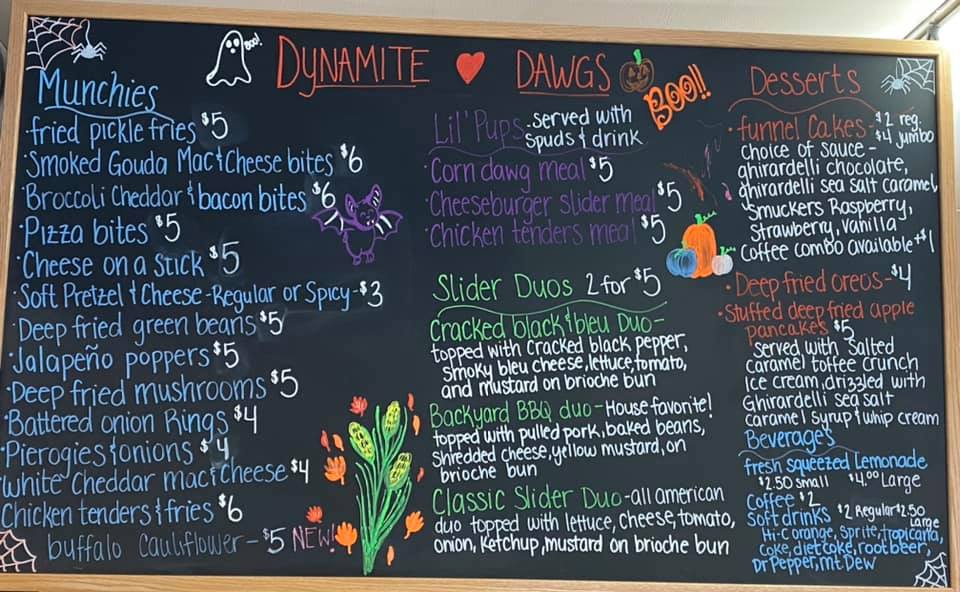 BOO!
DYNAMITE DAWGS
BOO!!
Munchies
·fried pickle fries $5
·Smoked Gouda Mac & Cheese bites $6
·Broccoli Cheddar & bacon bites $6
·Pizza bites $5
·Cheese on a Stick $5
·Soft Pretzel & Cheese-Regular or Spicy-$3
·Deep fried green beans $5
·Jalapeño poppers $5
·Deep fried mushrooms $5
·Battered onion Rings $4
·Pierogies & onions $4
·White Cheddar mac & Cheese $4
Chicken tenders & fries $6
buffalo cauliflower-$5 NEW!
Lil' Pups-served with
spuds & drink
·Corn dawg meal $5
·Cheeseburger slider meal $5
·Chicken tenders meal $5
Slider Duos 2 for $5
Cracked black & bleu Duo-
topped with cracked black pepper,
smoky bleu cheese, lettuce, tomato,
and mustard on brioche bun
Backyard BBQ duo-House favorite!
topped with pulled pork, baked beans,
shredded cheese, yellow mustard, on
brioche bun
Classic Slider Duo-all american
duo topped with lettuce, cheese, tomato,
onion, Ketchup, mustard on brioche bun
Desserts
·funnel Cakes-$2 reg.
$4 jumbo
choice of sauce-
ghirardelli chocolate,
ghirardelli sea salt caramel
Smuckers Raspberry,
Strawberry, Vanilla
Coffee combo available +$1
·Deep fried oreos-$4
·Stuffed deep fried apple
pancakes $5
Served with Salted
caramel toffee crunch
Ice cream, drizzled with
Ghirardelli sea salt
caramel syrup & whip cream
Beverages
fresh squeezed Lemonade
$2.50 small $4.00 Large
Coffee $2
Soft drinks $2 Regular $2.50
Large
Hi-C orange, Sprite, tropicana,
Coke, diet coke, root beer,
Dr Pepper, mt Dew